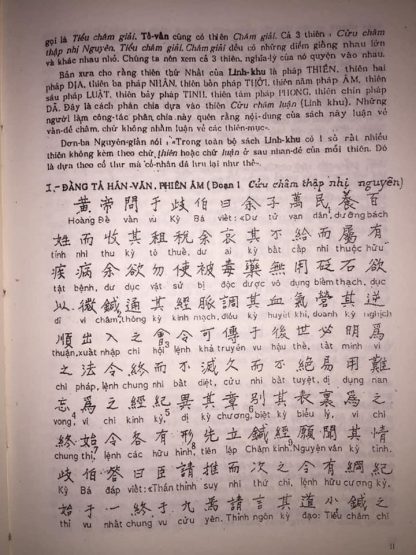 gọi là Tiểu châm giải. Tố-vấn cũng có thiên Châm giải. Cả 3 thiên : Cửu châm
thập nhị Nguyên, Tiểu châm giải, Châm giải đều có những điểm giống nhau lớn
và khác nhau nhỏ. Chúng ta nên xem cả 3 thiên, nghĩa-lý của nó quyện vào nhau.
Bản xưa cho rằng thiên thứ Nhất của Linh-khu là pháp THIÊN, thiên hai
pháp ĐỊA, thiên ba pháp NHÂN, thiên bốn pháp THỜI, thiên năm pháp ÂM, thiên
sáu pháp LUẬT, thiên bảy pháp TINH, thiên tám pháp PHONG, thiên chín pháp
DÃ. Đây là cách phân chia dựa vào thiên Cửu châm luận (Linh khu). Những
người làm công-tác phân chia này quên rằng nội-dung của sách này luận về
vấn-đề châm, chứ không nhằm luận về các thiên-mục».
Đơn-ba Nguyên-giản nói : «Trong toàn bộ sách Linh-khu có 1 số rất nhiều
thiên không kèm theo chữ thiên hoặc chữ luận ở sau nhan-đề của mỗi thiên. Đó
là dựa theo cổ thư mà cổ-nhân đã lưu lại như thế».
I.- ĐẰNG TẢ HÁN-VĂN, PHIÊN ÂM (Đoạn 1 Cửu châm thập nhị nguyên)
黃 帝 問 于 歧 伯 曰 余 子 萬 民 養 百
Hoàng Đế vấn vu Kỳ Bá viết : «Dư tử vạn dân, dưỡng bách
姓 而 收 其 租 稅 余 哀 其 不 給 而 屬 有
tính nhi thu kỳ tô thuế, dư ai kỳ bất cấp nhi thuộc hữu
疾 病 余 欲 勿 使 被 毒 藥 無 用 砭 石 欲
tật bệnh, dư dục vật sử bị độc dược vô dụng biếm thạch, dục
以 微 鍼 通 其 經 脈 調 其 血 氣 營 其 逆
dĩ vi châm, thông kỳ kinh mạch, điều kỳ huyết khí, doanh kỳ nghịch
順 出 入 之 會 令 可 傳 于 後 世 必 明 爲
thuận, xuất nhập chi hội lệnh khả truyền vu hậu thế, tất minh vi
之 法 令 終 而 不 滅 久 而 不 絕 易 用 難
chi pháp, lệnh chung nhi bất diệt, cửu nhi bất tuyệt, dị dụng nan
忘 爲 之 經 紀 異 其 章 別 其 表 裏 爲 之
vong, vi chi kinh kỷ, dị kỳ chương, biệt kỳ biểu lý, vi chi
終 始 令 各 有 形 先 立 鍼 經 願 聞 其 情
chung thỉ, lệnh các hữu hình, tiên lập Châm kinh. Nguyện văn kỳ tình.
歧 伯 答 曰 臣 請 推 而 次 之 令 有 綱 紀
Kỳ Bá đáp viết : «Thần thỉnh suy nhi thứ chi, lệnh hữu cương kỷ,
始 于 一 終 于 九 焉 請 言 其 道 小 鍼 之
thỉ vu nhất chung vu cửu yên. Thỉnh ngôn kỳ đạo: Tiểu châm chi
11